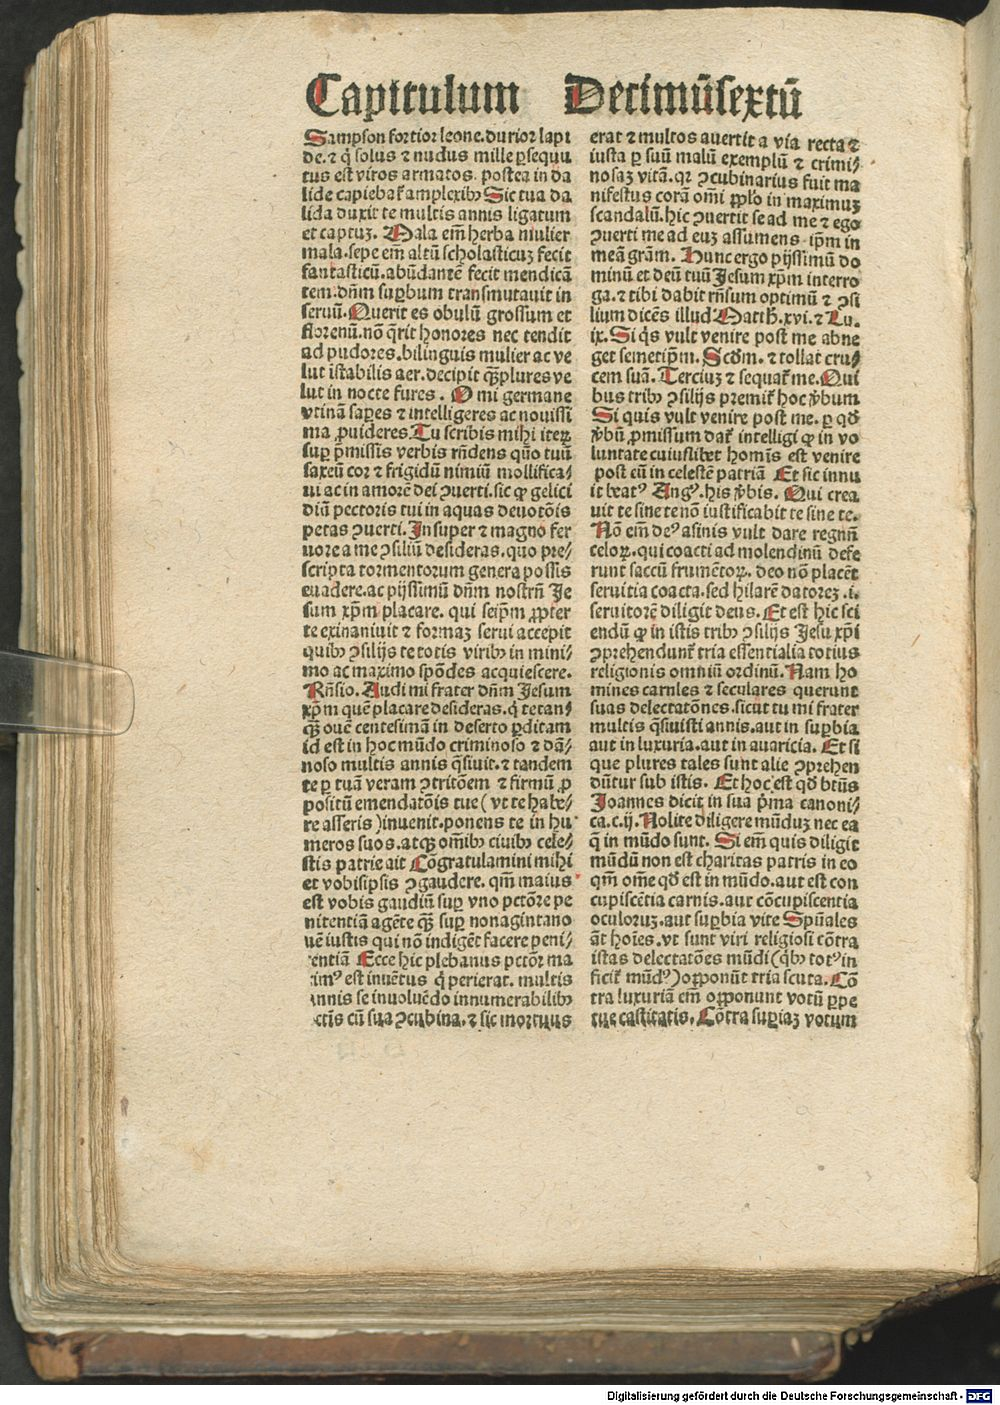 Capitulum Decimūsextū
Sampson fortior leone. durior lapi
de. ⁊ q̇ solus ⁊ nudus mille ꝑsequu
tus est viros armatos. postea in da
lide capiebat᷑ amplexibꝫ Sic tua da
lida duxit te multis annis ligatum
et captuꝫ. Mala em̄ herba mulier
mala. sepe em̄ altū scholasticuꝫ fecit
fantasticū. abūdantē fecit mendicā
tem. dn̄m suꝑbum transmutauit in
seruū. Querit es obulū grossum et
florenū. nō q̄rit honores nec tendit
ad pudores. bilinguis mulier ac ve
lut istabilis aer. decipit qꝫplures ve
lut in nocte fures. O mi germane
vtinā saꝑes ⁊ intelligeres ac nouissi
ma ꝓuideres. Tu scribis mihi iteꝝ
suꝑ p̄missis verbis rn̄dens quō tuū
saxeū cor ⁊ frigidū nimiū mollifica⸗
ui ac in amorē dei ꝯuerti. sic ꝙ gelici
diū pectoris tui in aquas deuotōis
petas ꝯuerti. In super ⁊ magno fer
uore a me ꝯsiliū desideras. quo pre⸗
scripta tormentorum genera possis
euadere. ac pijssimū dn̄m nostrū Je
sum xp̄m placare. qui seip̄m ꝓpter
te exinaniuit ⁊ formaꝫ serui accepit
quibꝫ ꝯsilijs te totis viribꝫ in mini⸗
mo ac maximo spōdes acquiescere.
Rn̄sio. Audi mi frater dn̄m Jesum
xp̄m quē placare desideras. q̇ te tan⸗
qꝫ ouē centesimā in deserto ꝑditam
id est in hoc mūdo criminoso ⁊ dā⸗
noso multis annis q̄siuit. ⁊ tandem
te ꝑ tuā veram ꝯtritōem ⁊ firmū ꝓ
positū emendatōis tue (vt te habe⸗
re asseris) inuenit. ponens te in hu
meros suos. atqꝫ om̄ibꝫ ciuibꝫ cele⸗
stis patrie ait Cōgratulamini mihi
et vobisipsis ꝯgaudere. qm̄ maius
est vobis gaudiū suꝑ vno pctōre pe
nitentiā agēte qꝫ suꝑ nonagintano
uē iustis qui nō indigēt facere peni⸗
tentiā Ecce hic plebanus pctōr ma
ximꝰ est inuētus q̇ perierat. multis
annis se inuoluēdo innumerabilibꝫ
ctīs cū sua ꝯcubina. ⁊ sic mortuus
erat ⁊ multos auertit a via recta ⁊
iusta ꝑ suū malū exemplū ⁊ crimi⸗
nosaꝫ vitā. qꝛ ꝯcubinarius fuit ma
nifestus corā om̄i ꝓplo in maximuꝫ
scandalū. hic ꝯuertit se ad me ⁊ ego
ꝯuerti me ad euꝫ assumens ip̄m in
meā gr̄am. Hunc ergo pijssimū do
minū et deū tuū Jesum xp̄m interro
ga. ⁊ tibi dabit rn̄sum optimū ⁊ ꝯsi
lium dicēs illud Matth̄. xvi. ⁊ Lu.
ix. Si q̇s vult venire post me abne
get semetip̄m. Scd̄m. ⁊ tollat cru⸗
cem suā. Terciuꝫ ⁊ sequat᷑ me. Qui
bus tribꝫ ꝯsilijs premit᷑ hoc v̄bum
Si quis vult venire post me. ꝑ qd̄
v̄bū ꝓmissum dat᷑ intelligi ꝙ in vo
luntate cuiuslibet homīs est venire
post eū in celestē patriā Et sic innu
it beatꝰ Augꝰ. his v̄bis. Qui crea
uit te sine te nō iustificabit te sine te.
Nō em̄ deꝰ asinis vult dare regnū
celoꝝ. qui coacti ad molendinū defe
runt saccū frumētoꝝ. deo nō placēt
seruitia coacta. sed hilarē datoreꝫ .i.
seruitorē diligit deus. Et est hic sci
endū ꝙ in istis tribꝫ ꝯsilijs Jesu xp̄i
ꝯprehendunt᷑ tria essentialia totius
religionis omniū ordinū. Nam ho
mines carnles ⁊ seculares querunt
suas delectatōnes. sicut tu mi frater
multis q̄siuisti annis. aut in suꝑbia
aut in luxuria. aut in auaricia. Et si
que plures tales sunt alie ꝯprehen
dūtur sub istis. Et hoc est qd̄ btūs
Joannes dicit in sua p̄ma canoni⸗
ca. c. ij. Nolite diligere mūduꝫ nec ea
q̄ in mūdo sunt. Si em̄ quis diligit
mūdū non est charitas patris in eo
qm̄ om̄e qd̄ est in mūdo. aut est con
cupiscētia carnis. aut cōcupiscentia
oculoruꝫ. aut suꝑbia vite Spūales
āt hoīes. vt sunt viri religiosi cōtra
istas delectatōes mūdi (q̇bꝫ totꝰ in
ficit᷑ mūdꝰ) oꝑponūt tria scuta. Cō
tra luxuriā em̄ oꝑponunt votū ꝑpe
tue castitatis. Cōtra suꝑiaꝫ votum
Digitalisierung gefördert durch die Deutsche Forschungsgemeinschaft - DFG